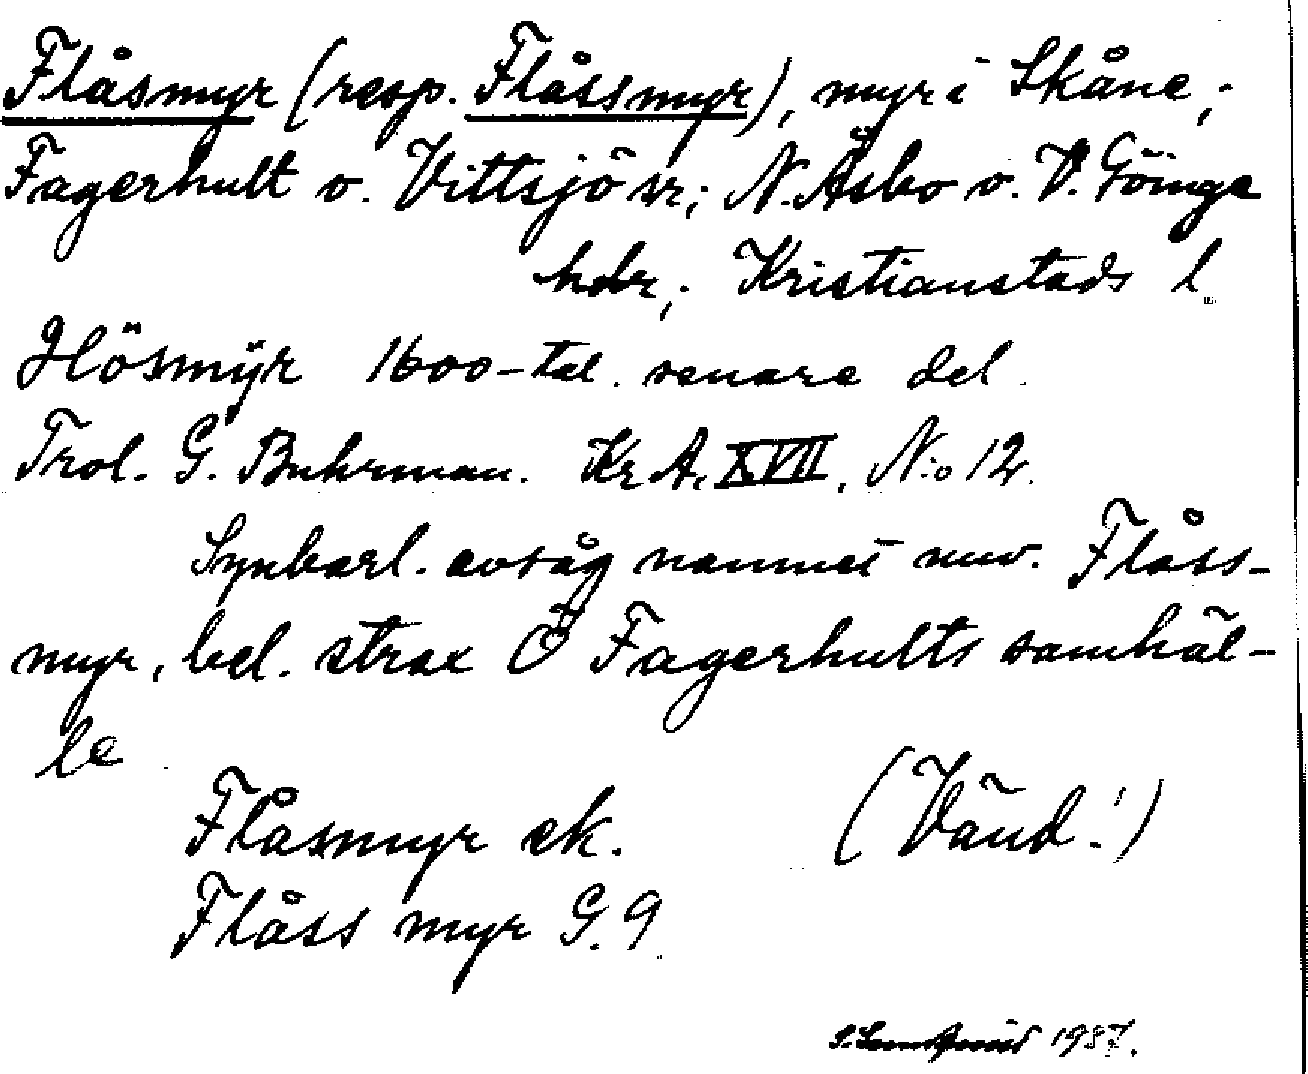 Flåsmyr (resp. Flåssmyr), myr i Skåne;
Fagerhult o. Vittsjö snr; N. Åsbo o. V. Göinge
hdr; Kristianstads l.
Hösmÿr 1600-tal. senare del.
Trol. G. Buhrman. Kr A, XVII, N:o 12.
Synbarl. avsåg namnet nuv. Flåss-
myr, bel. strax Ö Fagerhults samhäl-
le.
Flåsmyr ek. (Vänd!)
Flåss myr G. 9.
1987.